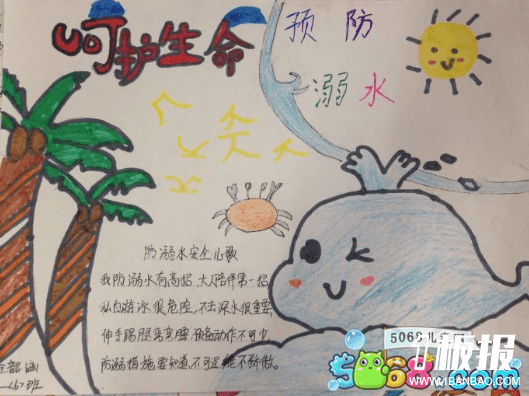 呵护生命
预防
溺水
防溺水安全心歌
我防溺水有高招,大人陪伴第一招
私自游泳很危险,不去深水很重要
伸手踢腿弯弯腰,准备动作不可少
防溺措施要知道,不可逞能不骄傲。
167班
5068儿
板报
5068.com
WWW.1BANBAO.COM